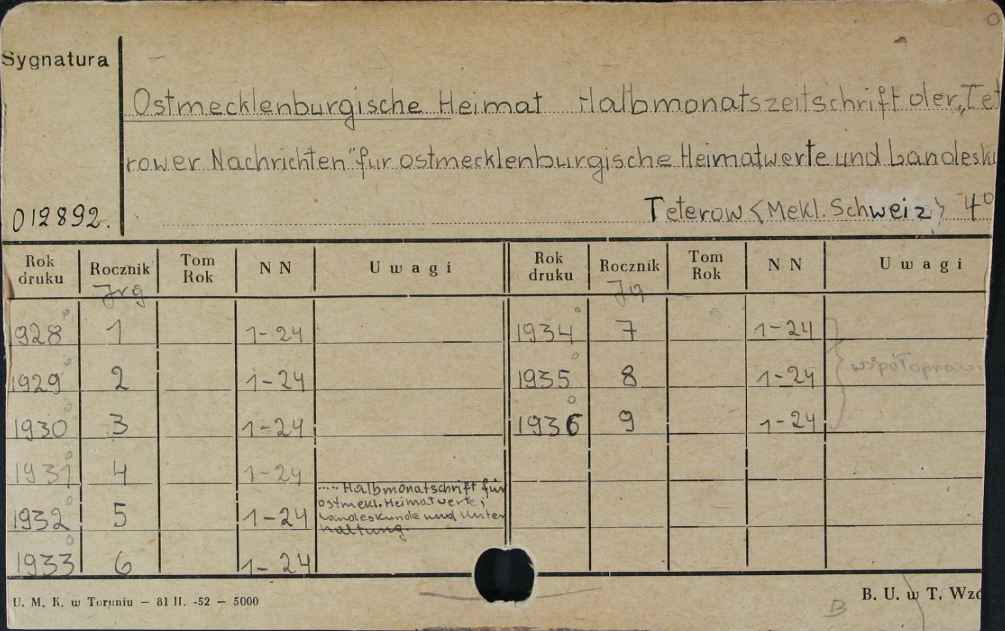 Sygnatura
Ostmecklenburgische Heimat Halbmonatszeitschrift der „Tet
rower Nachrichten" für ostmecklenburgische Heimatwerte und Landesku
Teterow <Mekl. Schweiz> 4°
012892.
Rok druku Rocznik Tom Rok N N Uwagi Rok druku Rocznik Tom Rok N N Uwagi
Jrg Jg
1928 1 1-24 1934 7 1-24
1929 2 1-24 1935 8 1-24 współopraw.
1930 3 1-24 1936 9 1-24
1931 4 1-24
.... Halbmonatschrift für
ostmekl. Heimatwerte,
1932 5 1-24 Landeskunde und Unter
haltung.
1933 6 1-24
U. M. K. w Toruniu — 81 II. -52 — 5000
B
B. U. w T. Wzó